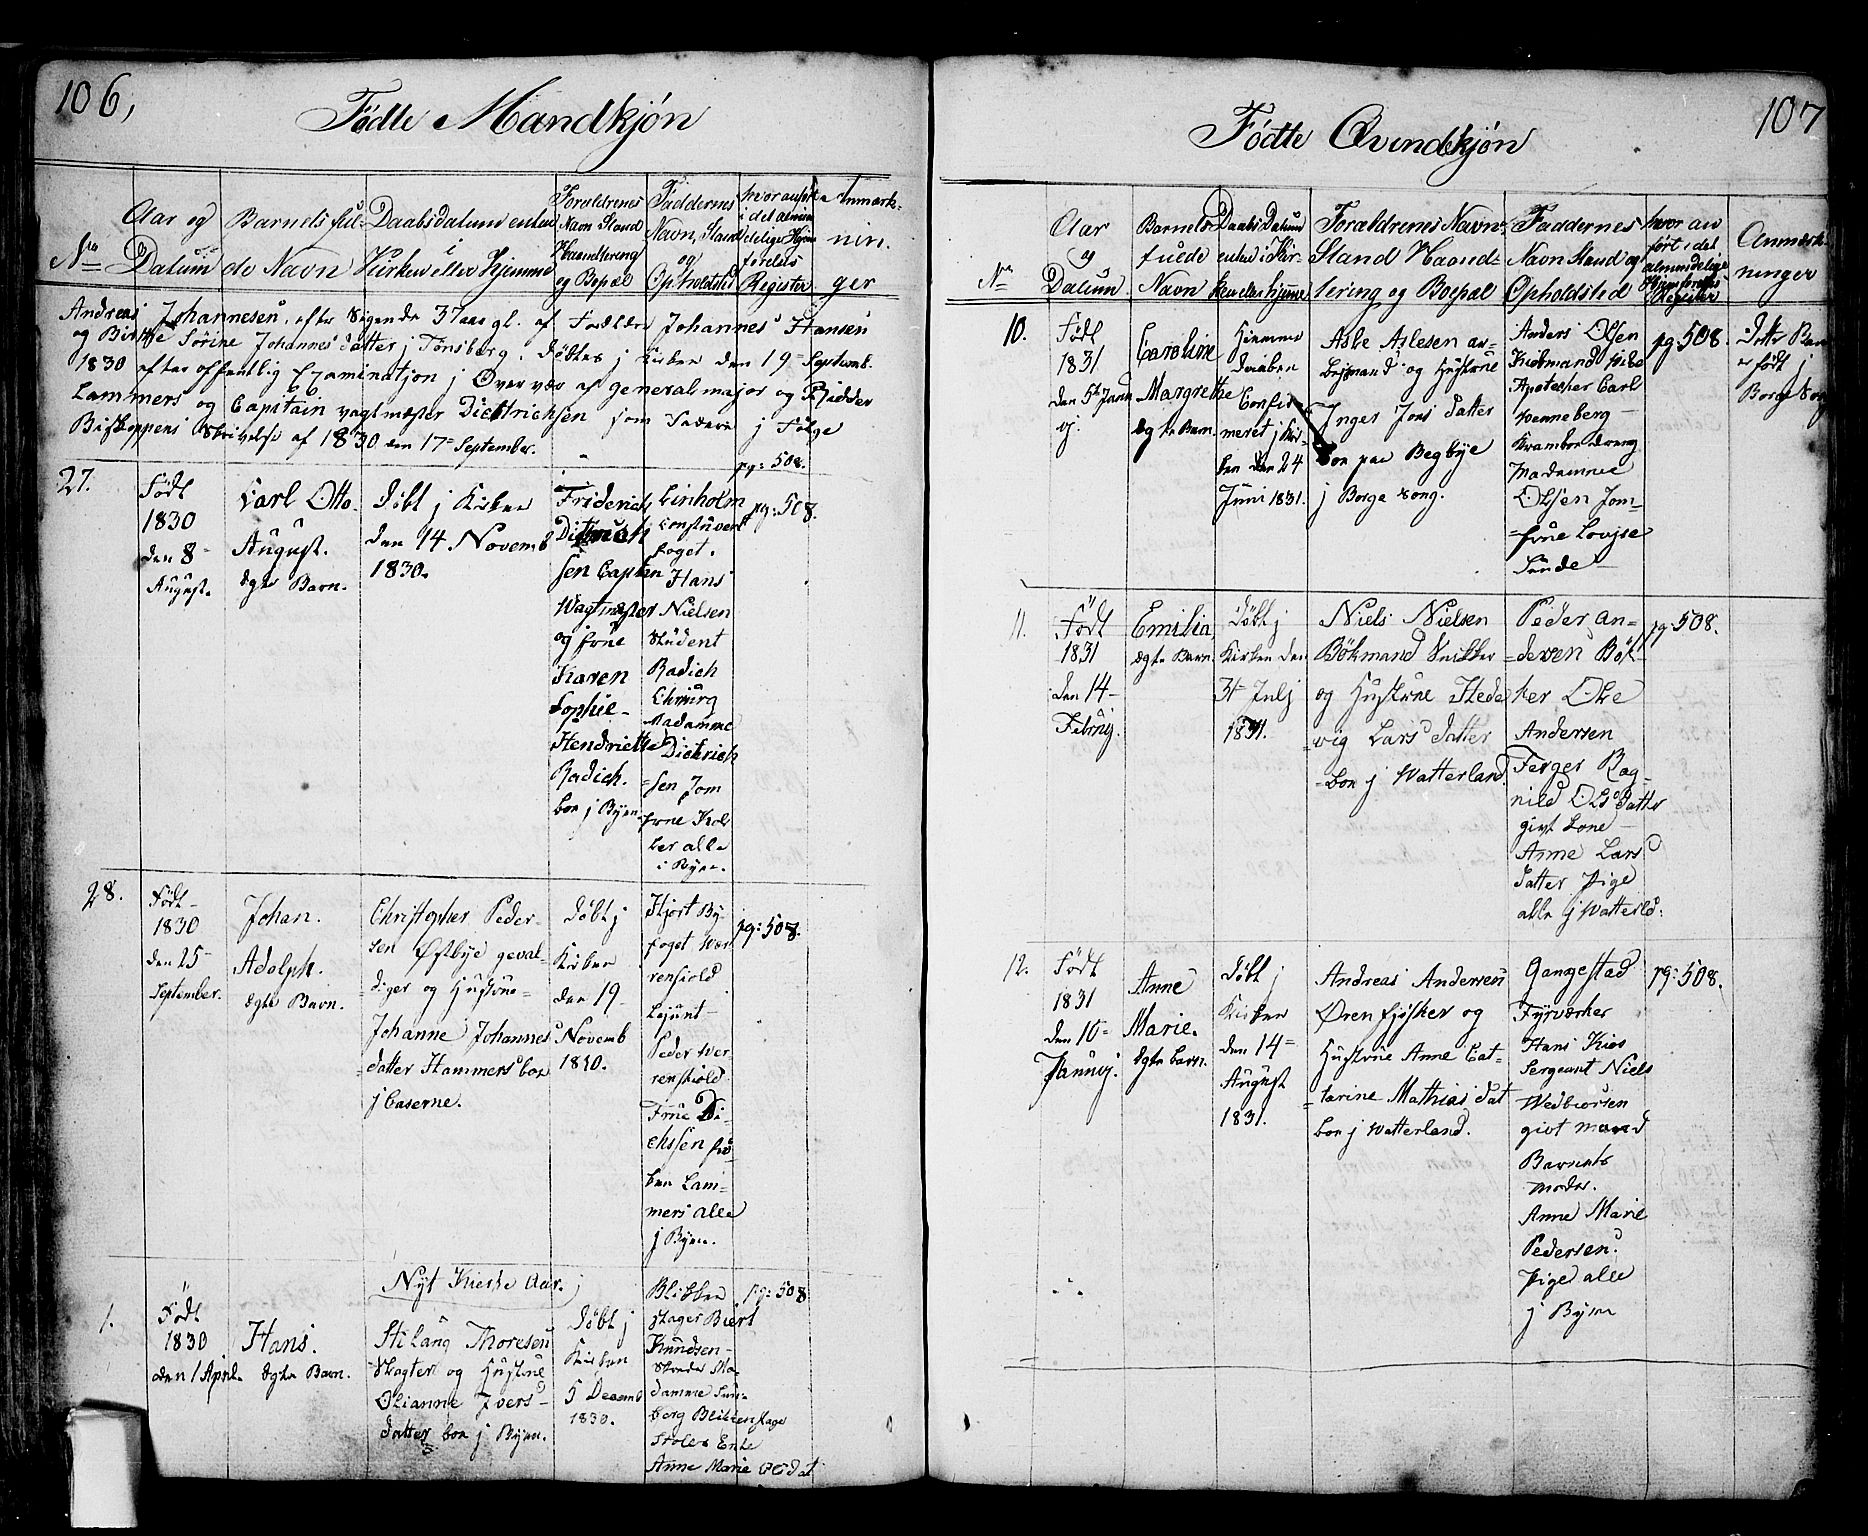 106,
Fødte Mandkjøn
No
Aar og
Datum
Barnets ful-
de Navn
Daabsdatum enten
i
Kirken eller Hjemme
Foraldrenes
Navn Stand
Haandtering
og Bopæl
Faddernes
Navn, Stand
og
Opholdsted
hvor anført
i det almin
delige
Register
Anmærk-
nin-
ger
Andreas Johannesen, efter Sigende 37 aar gl. af Forældre Johannes Hansen
og Birthe Sørine Johannes datter j Tønsberg. døbtes j Kirken den 19 Septemb.
1830 efter offentlig Examination j Overvær af generalmajor og Ridder
Lammers og Capitain vagtmæster Dietrichsen som Faddere j Følge
Biskoppens Skrivelse af 1830 den 17 September.
pg: 508.
27.
Født
1830
den 8
August.
Carl Otto
August.
ægte Barn.
Døbt j Kirken
den 14 Novemb
1830.
Friderich
sen Captein
Wagtmæster
og frue
Karen
Sophie
Hendriette
Radich.
boe j Byen
Linholm
Constuvert
foget.
Hans
Nielsen
Student
Radich
Chirurg
Madamme
Dictrich
sen Jom
frue Kol
ber alle
i Byen.
pg: 508.
28.
Født
1830
den 25
September.
Johan.
Adolph.
ægte Barn.
Christopher Peder-
sen Østbye geval-
diger og Hustrue
Johanne Johannes
datter Hammers boe
j Caserne.
Døbt j
Kirken
den 19
Novemb
1830.
Hjort By-
foget Wær
renskiold
Peder Wer-
renskiold
Frue Di-
chssen frø-
ken Lam-
mers alle
j Byen.
pg: 508.
Nyt Kirke Aar.
1.
Født
1830
den 1 April
Hans.
ægte Barn.
Stilaug Thoresen
Slagter og Hustrue
Olianne Ivers
datter boe j Byen.
Døbt j
Kirken
5 Decemb
1830.
Blikken
slager Biert
Knudsen
Skreder Ma-
damme Sun-
berg Blikkenslager
Stoles Enke
Anne Marie dat
pg: 508
107
Fødte Qvindekjøn
No
Aar
og
Datum
Barnets
fulde
Navn
Daabs Datum
enten i Kir-
ken eller hjemme
Forældrenes Navn
Stand Haand-
tering og Boepæl
Faddernes
Navn Stand og
Opholdsted
hvor an
ført i det
almindelige
Register
Anmærk-
ninger
10.
Født
1831
Caroline
Margrethe
ægte Barn.
Hjemme
døbt
Confir-
meret j Kir-
ken den 24
Juni 1831.
Asle Aslesen ar-
beismand og Hustrue
Inger Jens datter
boe paa Begbye
j Borge Song.
Anders Olsen
Apotecher Carl
Wenneberg
Krambordreng
Madamme
Olsen Jom-
frue Lovise
Sunde
pg: 508.
Dette Barn
er født j
Borge Sogn
11.
Født
1831
den 14
Februj.
Emilia
ægte Barn.
Døbt j
Kirken den
31 Julj
1831.
Niels Nielsen
Bökmand Snikker
og Hustrue Hede
vig Lars datter
boe j Watterland
Peder An-
dersen Bøt
ker Ole
Andersen
Ferger Rag-
nild Ols datter
givt kone
Anne Lars
datter Pige
alle j Watterld:
pg: 508.
12.
Født
1831
den 10
Januj.
Anne
Marie.
ægte barn.
Døbt j
Kirken
den 14
August
1831.
Andreas Andersen
Øren fisker og
Hustrue Anne Cat-
tarine Mathias dat
boe j Watterland.
Gangestad
Fyrværker
Hans Kiøs
Sergeant Niels
Wedbiørsen
givt mand
Barnets
moder.
Anne Marie
Pedersen.
Pige alle
j Byen
pg: 508.